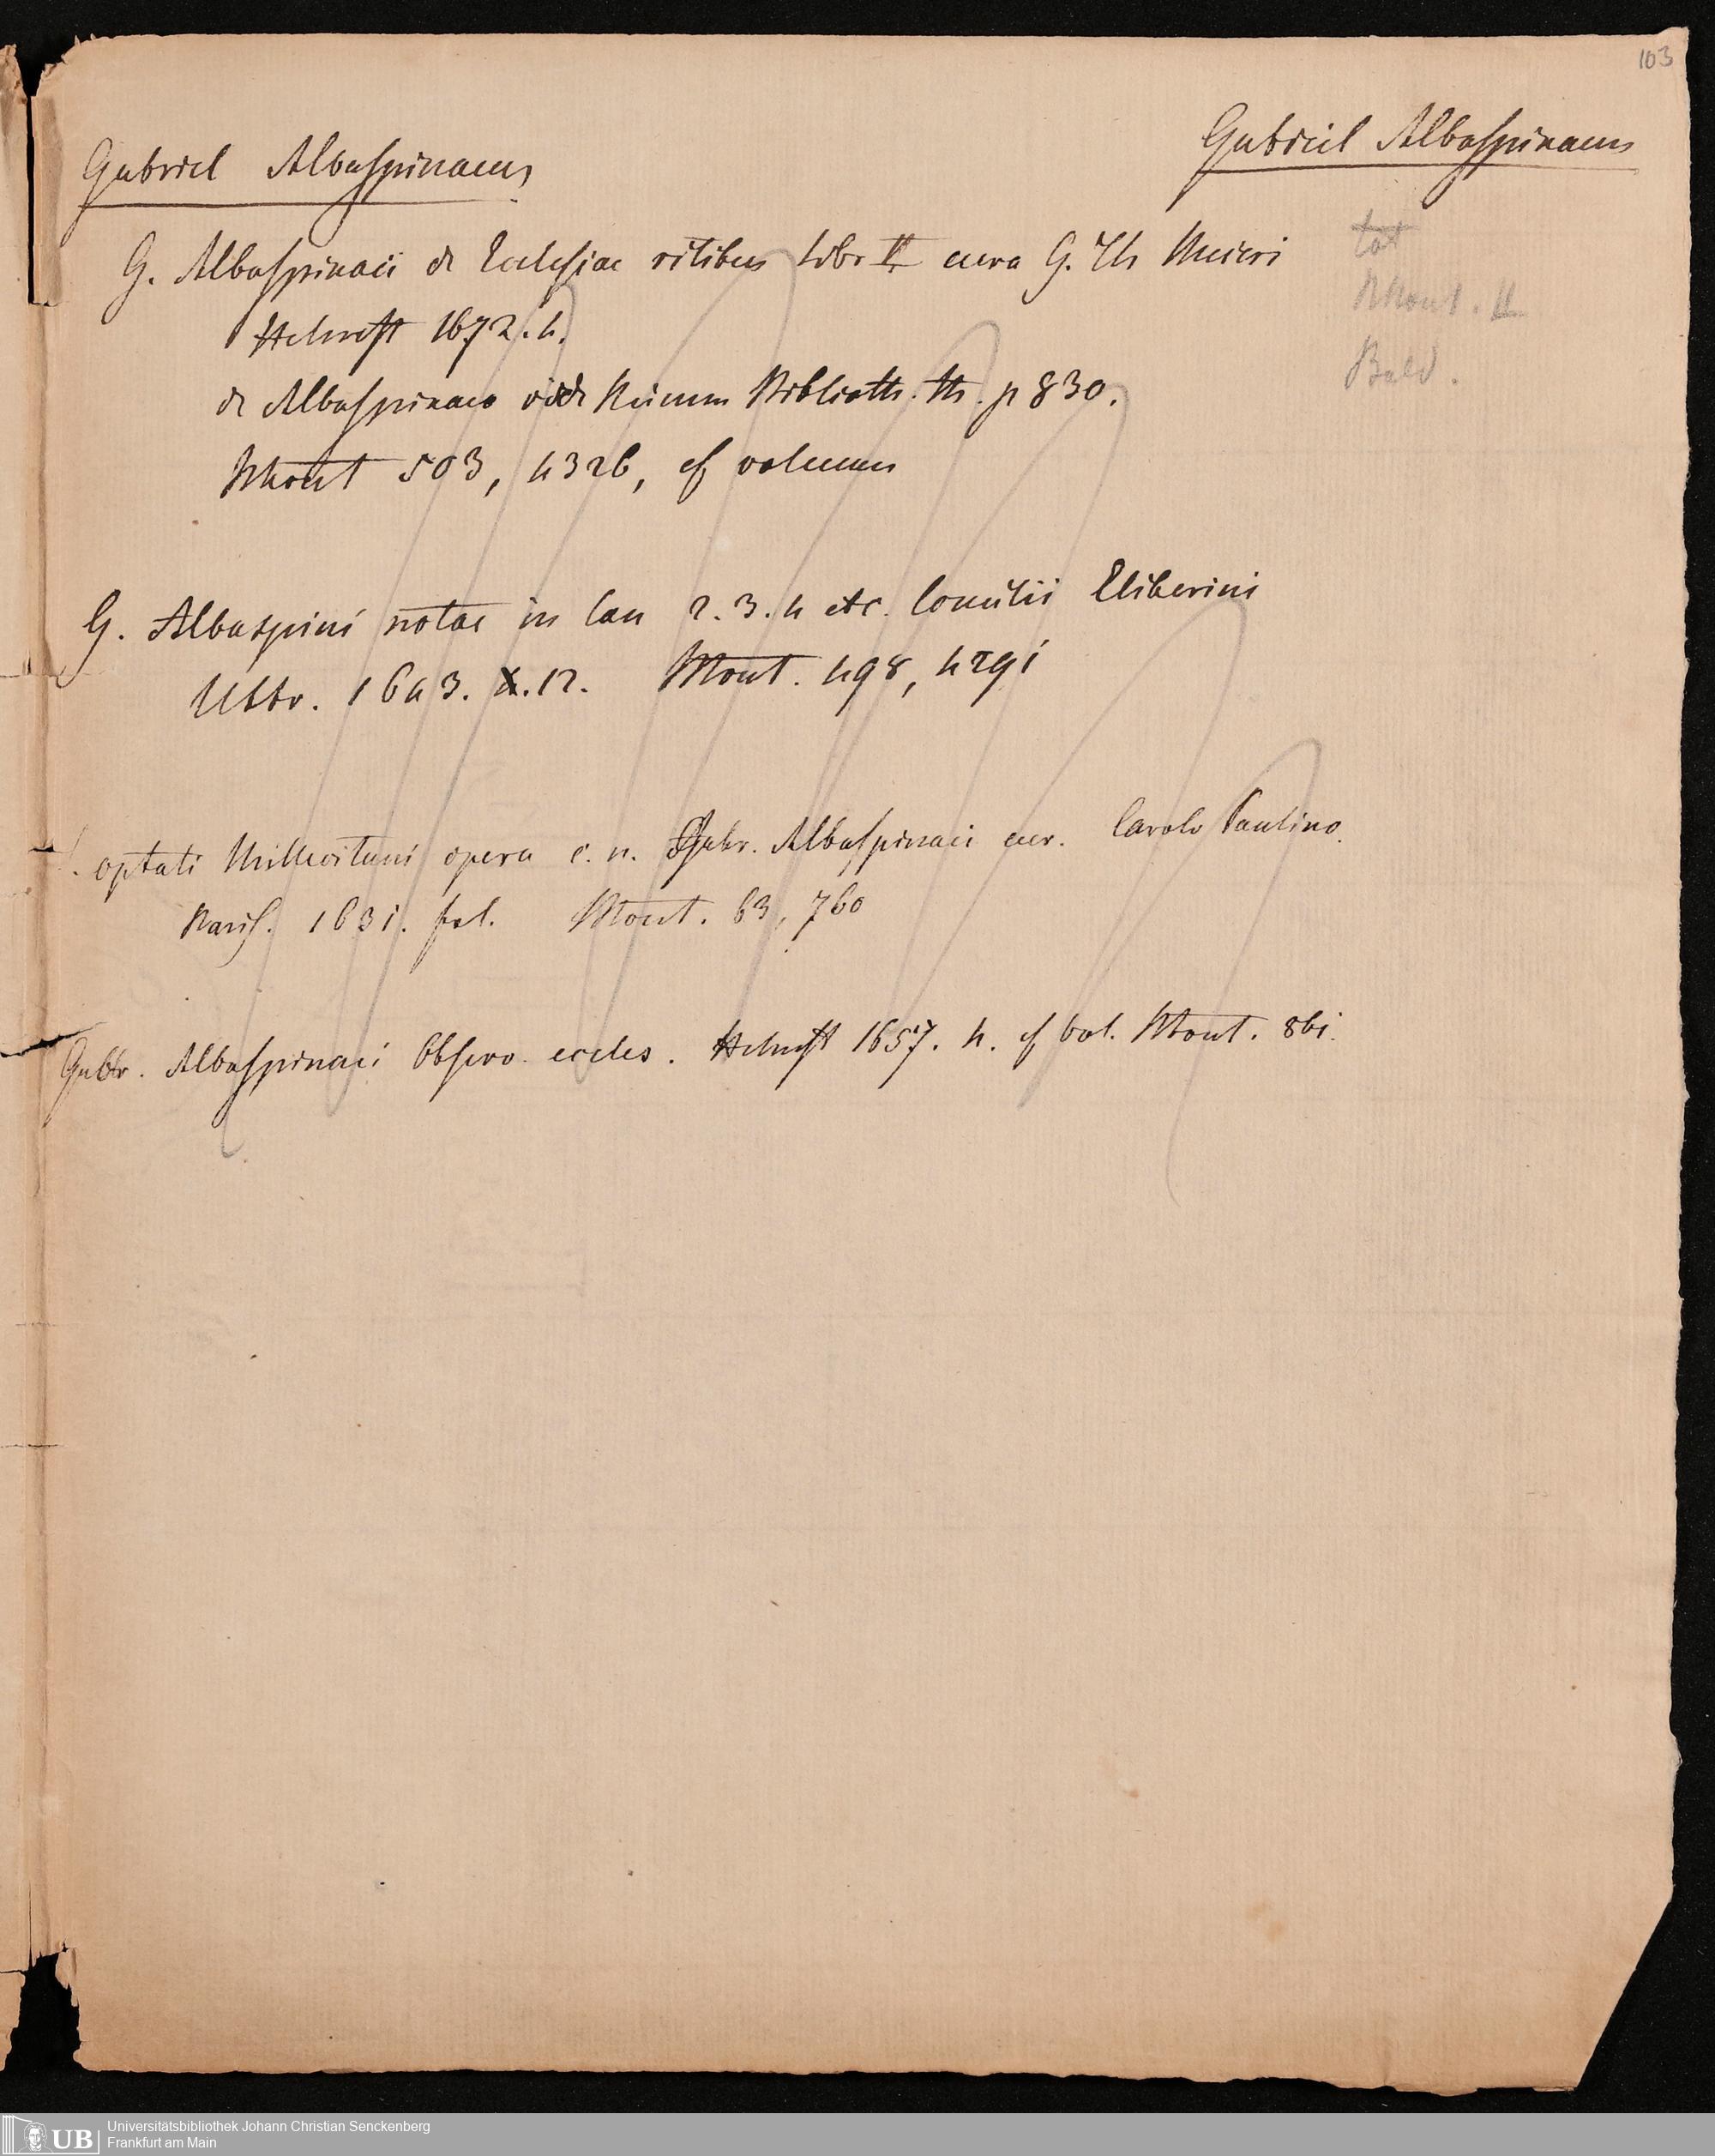 103
Gabriel Albaspinaeus
Gabriel Albaspinaeus
G. Albaspinaei de Ecclesiae ritibus libr II cura G. Th Meieri
Helmst 1672. 4.
de Albaspinaeo vide Biblioth. th. p 830.
503, 4326, cf volumen
tot
II
Bald.
G. Albaspini notae in Can 2. 3. 4 etc. Concilii Eliberini
1643. 12. Mont. 498, 4291
optati Millevitani opera c. n. Gabr. Albaspinaei cur. Carolo Paulino
Paris. 1631. fol. Mont. 63, 760
Gabr. Albaspinaei Observ. eccles. Helmst 1657. 4. cf vol. Mont. 861.
UB
Universitätsbibliothek Johann Christian Senckenberg
Frankfurt am Main